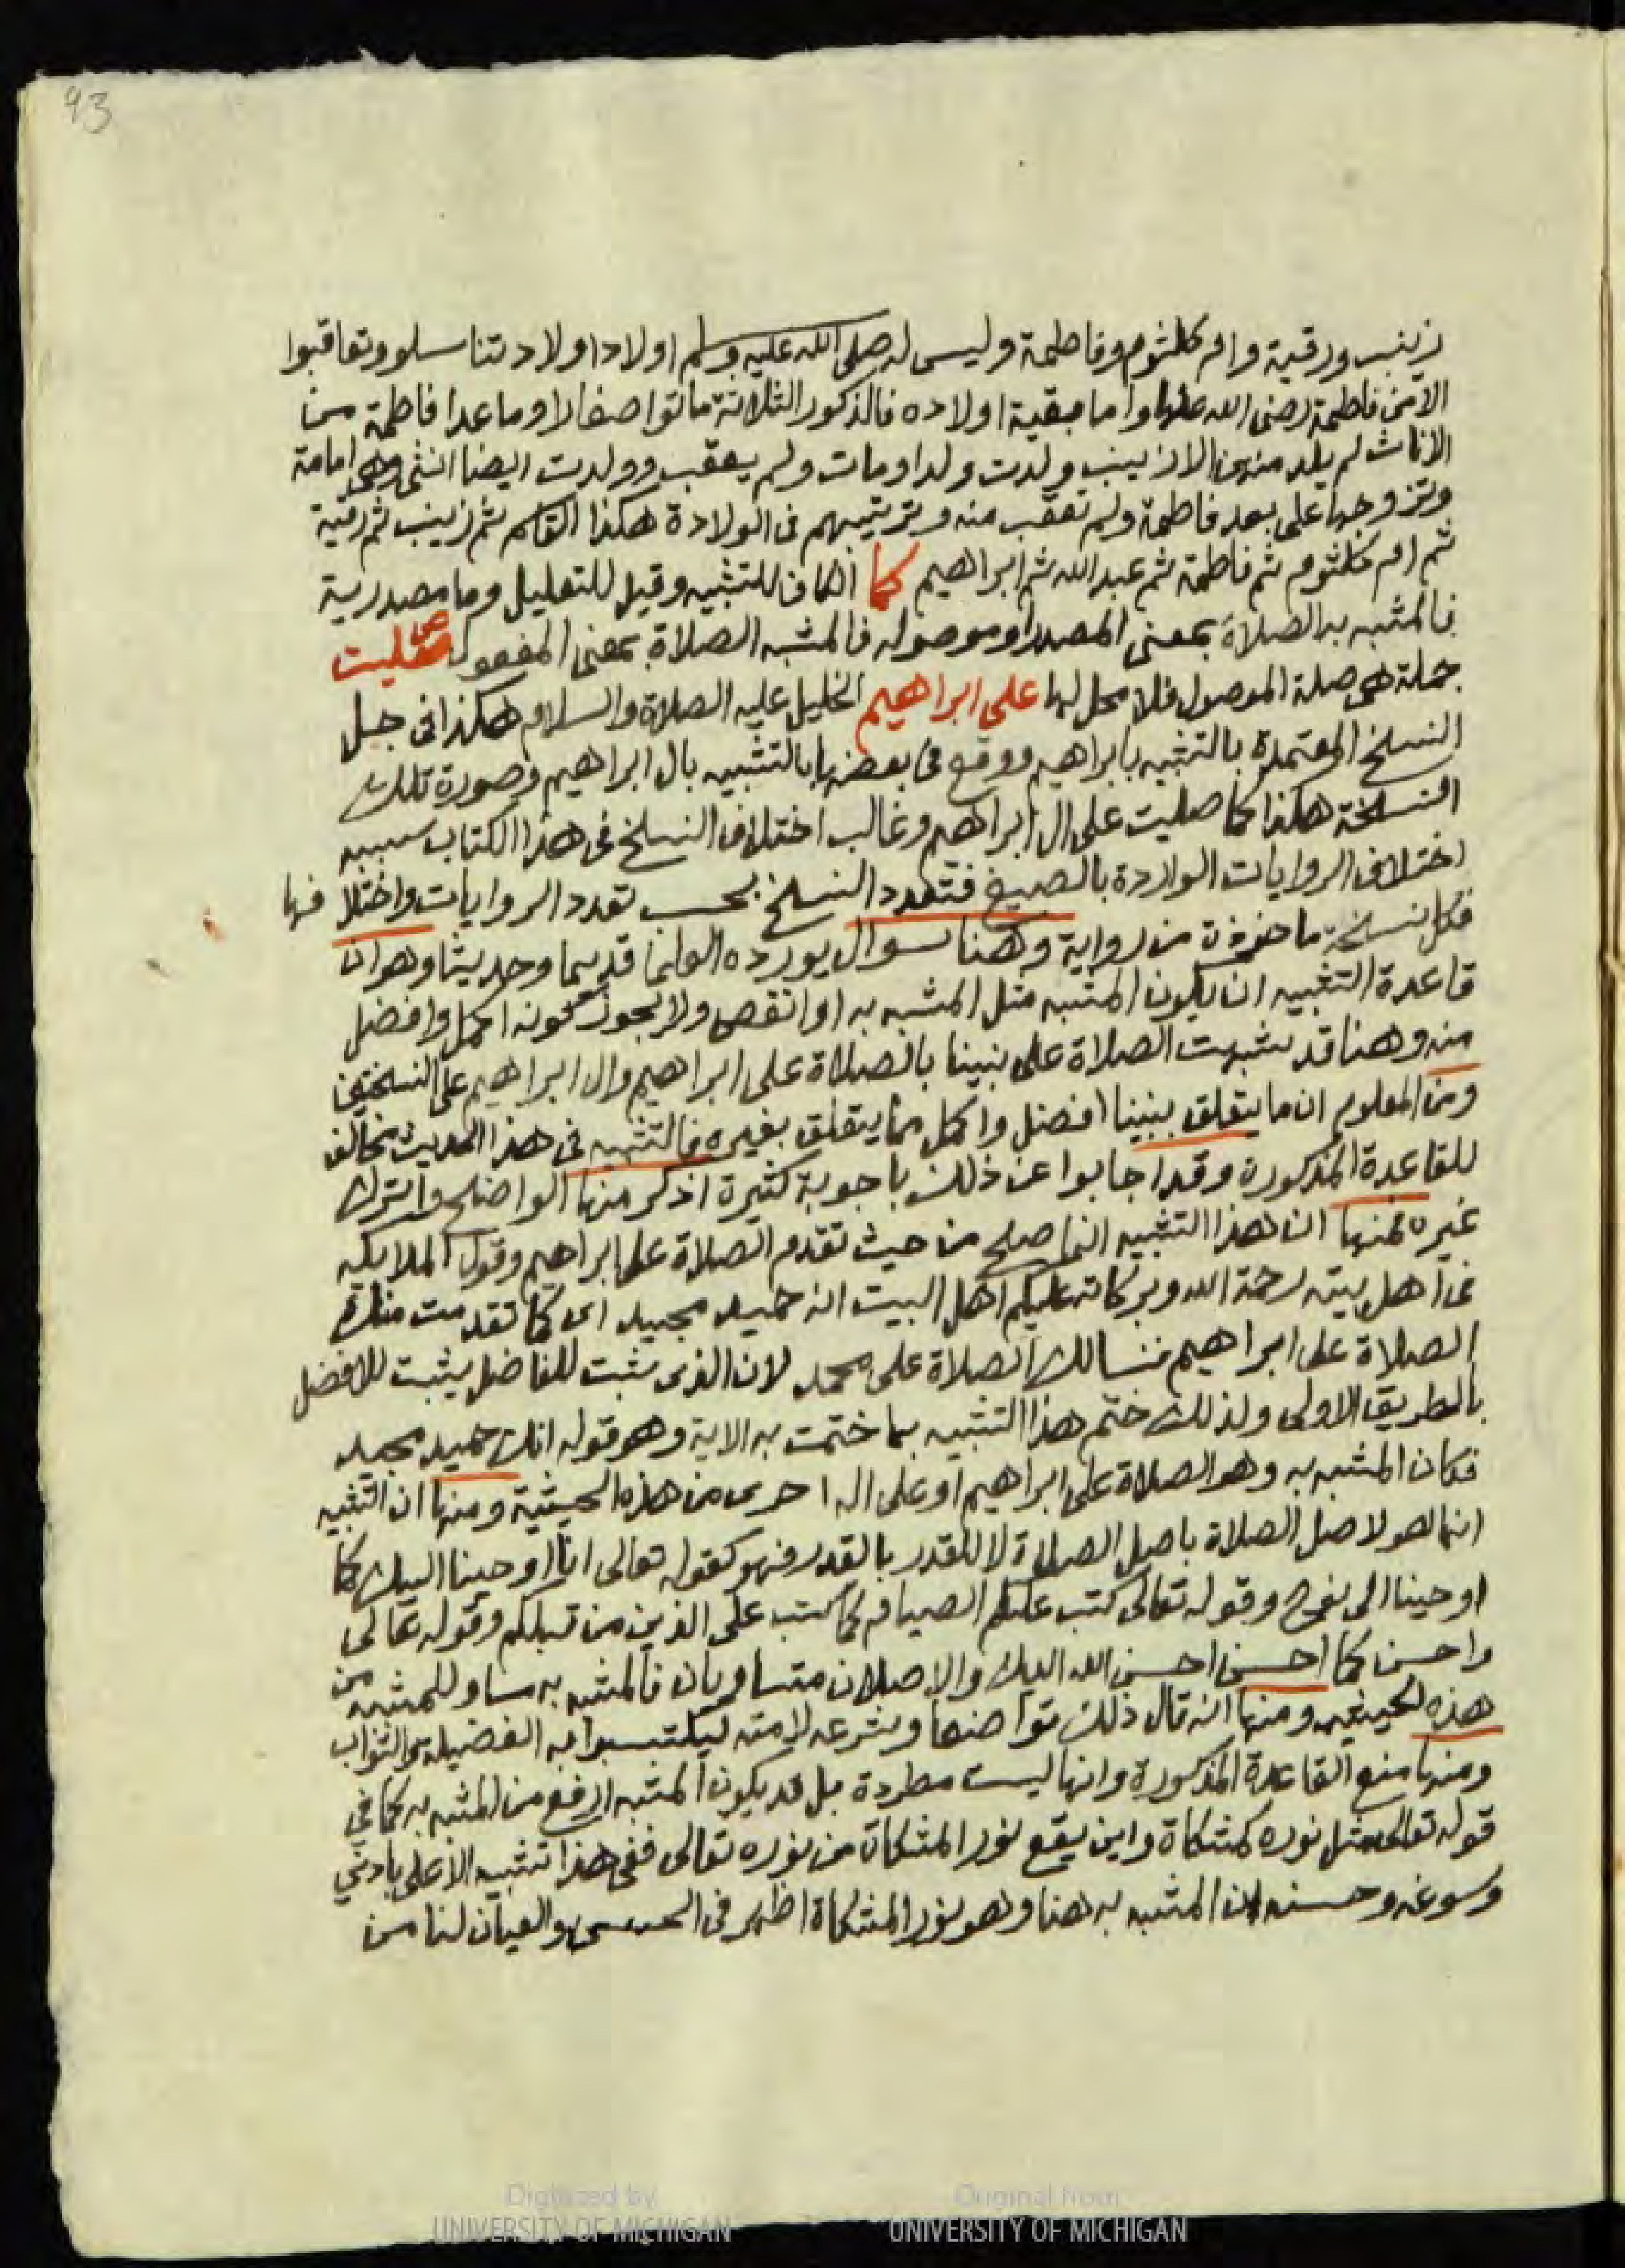 93
زينب ورقية وام كلثوم وفاطمة وليس له صلى الله عليه وسلم اولاد اولاد تناسلو وتعاقبوا
الا من فاطمة رضى الله عنها واما بقية اولاده فالذكور الثلاثة ماتوا صغارا وما عدا فاطمة من
الاناث لم يلد منهن الا زينب ولدت ولدا ومات ولم يعقب وولدت ايضا انثى وهى امامة
وتزوجها على بعد فاطمة ولم تعقب منه وترتيبهم فى الولادة هكذا القاسم ثم زينب ثم رقية
ثم ام كلثوم ثم فاطمة ثم عبد الله ثم ابراهيم كما الكاف للتشبيه وقيل للتعليل وما مصدرية
فالمشبه به الصلاة بمعنى المصدر او موصوله فالمشبه الصلاة بمعنى المفعول صليت
جملة هى صلة الموصول فلا محل لها على ابراهيم الخليل عليه الصلاة والسلام هكذا فى جل
النسخ المعتمدة بالتشبيه بابراهيم ووقع فى بعضها بالتشبيه بال ابراهيم وصورة تلك
النسخة هكذا كما صليت على ال ابراهيم وغالب اختلاف النسخ فى هذا الكتاب سببه
اختلاف الروايات الواردة بالصيغ فتعدد النسخ بحسب تعدد الروايات واختلافها
فكل نسخة ماخوذة من رواية وهنا سوال يورده العلما قديما وحديثا وهو ان
قاعدة التشبيه ان يكون المشبه مثل المشبه به او انقص ولا يجوز كونه اكمل وافضل
منه وهنا قد شبهت الصلاة على نبينا بالصلاة على ابراهيم وال ابراهيم على النسختين
ومن المعلوم ان ما يتعلق بنبينا افضل واكمل مما يتعلق بغيره فالتشبيه فى هذا الحديث مخالف
للقاعدة المذكورة وقد اجابوا عن ذلك باجوبة كثيرة اذكر منها الواضح واترك
غيره فمنها ان هذا التشبيه انما صلح من حيث تقدم الصلاة على ابراهيم وقول الملايكه
فى اهل بيته رحمة الله وبركاته عليكم اهل البيت انه حميد مجيد اى كما تقدمت منك
الصلاة على ابراهيم فنسالك الصلاة على محمد لان الذى يثبت للفاضل يثبت للافضل
بالطريق الاولى ولذلك ختم هذا التشبيه بما ختمت به الاية وهو قوله انك حميد مجيد
فكان المشبه به وهو الصلاة على ابراهيم او على اله احرى من هذه الحيثية ومنها ان التشبيه
انما هو لاصل الصلاة باصل الصلاة لا للقدر بالقدر فهو كقوله تعالى انا اوحينا اليك كما
اوحينا الى نوح وقوله تعالى كتب عليكم الصيام كما كتب على الذين من قبلكم وقوله تعالى
واحسن كما احسن احسن الله اليك والاصلان متساويان فالمشبه به مساو للمشبه من
هذه الحيثية ومنها انه قال ذلك تواضعا وشرعه لامته ليكتسبوا به الفضيله والثواب
ومنها منع القاعدة المذكورة وانها ليست مطردة بل قد يكون المشبه ارفع من المشبه به كما فى
قوله تعالى مثل نوره كمشكاة واين يقع نور المشكاة من نوره تعالى ففى هذا تشبيه الاعلى بادنى
وسوغه وحسنه ان المشبه به هنا وهو نور المشكاة اظهر فى الحس والعيان لنا من
Digitized by UNIVERSITY OF MICHIGAN
Original from UNIVERSITY OF MICHIGAN